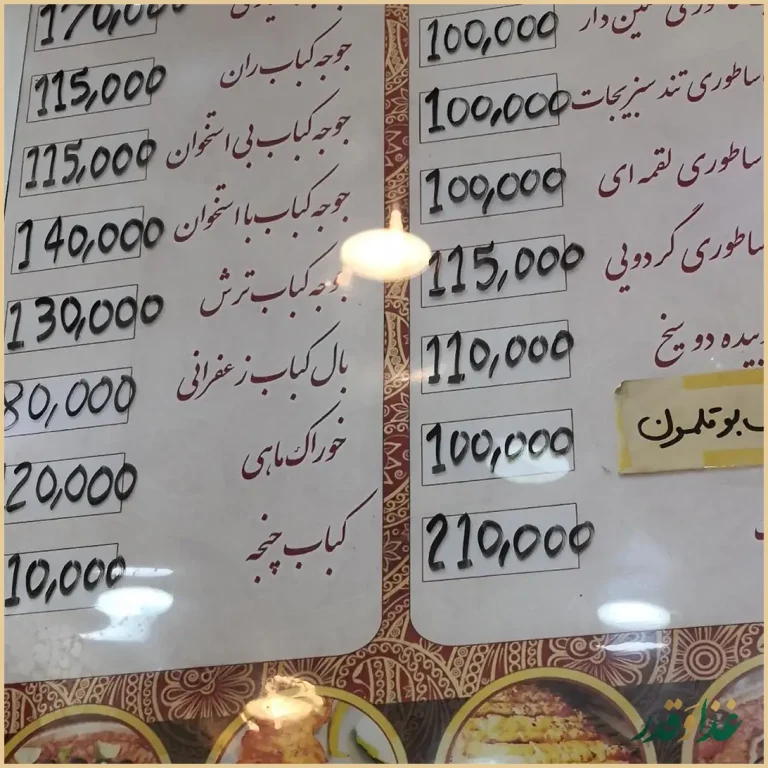 دار 100,000
ساطوری تند سبزیجات 100,000
ساطوری لقمه ای 100,000
ساطوری گردویی 115,000
دو سیخ 110,000
بوقلمون 100,000
210,000
170,000
جوجه کباب ران 115,000
جوجه کباب بی استخوان 115,000
جوجه کباب با استخوان 140,000
جوجه کباب ترش 130,000
بال کباب زعفرانی 80,000
خوراک ماهی 20,000
کباب چنجه 10,000
غذا و قدر